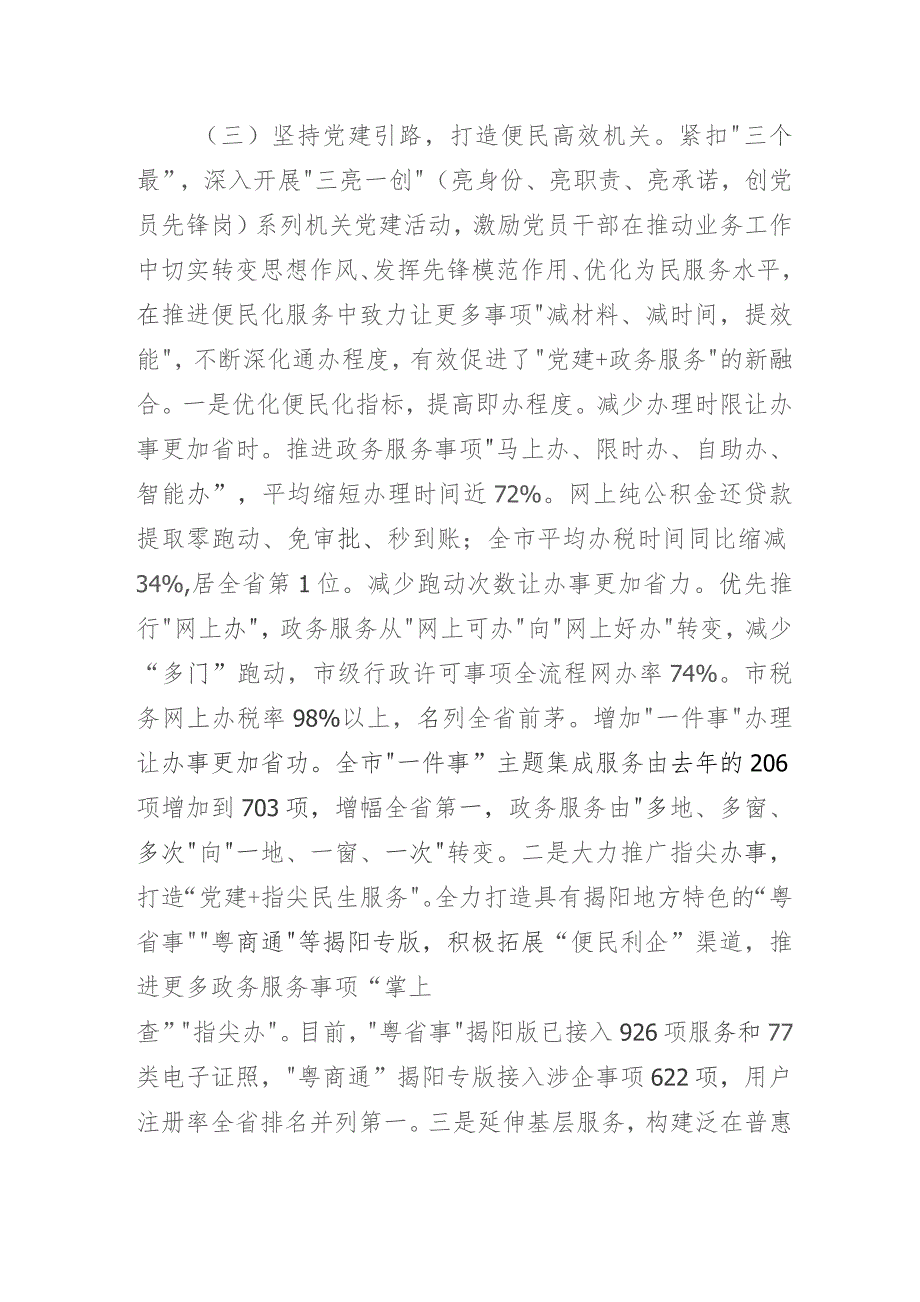 （三）坚持党建引路，打造便民高效机关。紧扣"三个
最”，深入开展"三亮一创"（亮身份、亮职责、亮承诺，创党
员先锋岗）系列机关党建活动，激励党员干部在推动业务工作
中切实转变思想作风、发挥先锋模范作用、优化为民服务水平，
在推进便民化服务中致力让更多事项"减材料、减时间，提效
能"，不断深化通办程度，有效促进了"党建+政务服务"的新融
合。一是优化便民化指标，提高即办程度。减少办理时限让办
事更加省时。推进政务服务事项"马上办、限时办、自助办、
智能办”，平均缩短办理时间近72%。网上纯公积金还贷款
提取零跑动、免审批、秒到账；全市平均办税时间同比缩减
34%,居全省第1位。减少跑动次数让办事更加省力。优先推
行"网上办"，政务服务从"网上可办"向"网上好办"转变，减少
“多门”跑动，市级行政许可事项全流程网办率74%。市税
务网上办税率98%以上，名列全省前茅。增加"一件事"办理
让办事更加省功。全市"一件事”主题集成服务由去年的206
项增加到703项，增幅全省第一，政务服务由"多地、多窗、
多次"向"一地、一窗、一次"转变。二是大力推广指尖办事，
打造“党建+指尖民生服务"。全力打造具有揭阳地方特色的“粤
省事""粤商通"等揭阳专版，积极拓展“便民利企”渠道，推
进更多政务服务事项“掌上
查”"指尖办"。目前，"粤省事"揭阳版已接入926项服务和77
类电子证照，"粤商通”揭阳专版接入涉企事项622项，用户
注册率全省排名并列第一。三是延伸基层服务，构建泛在普惠